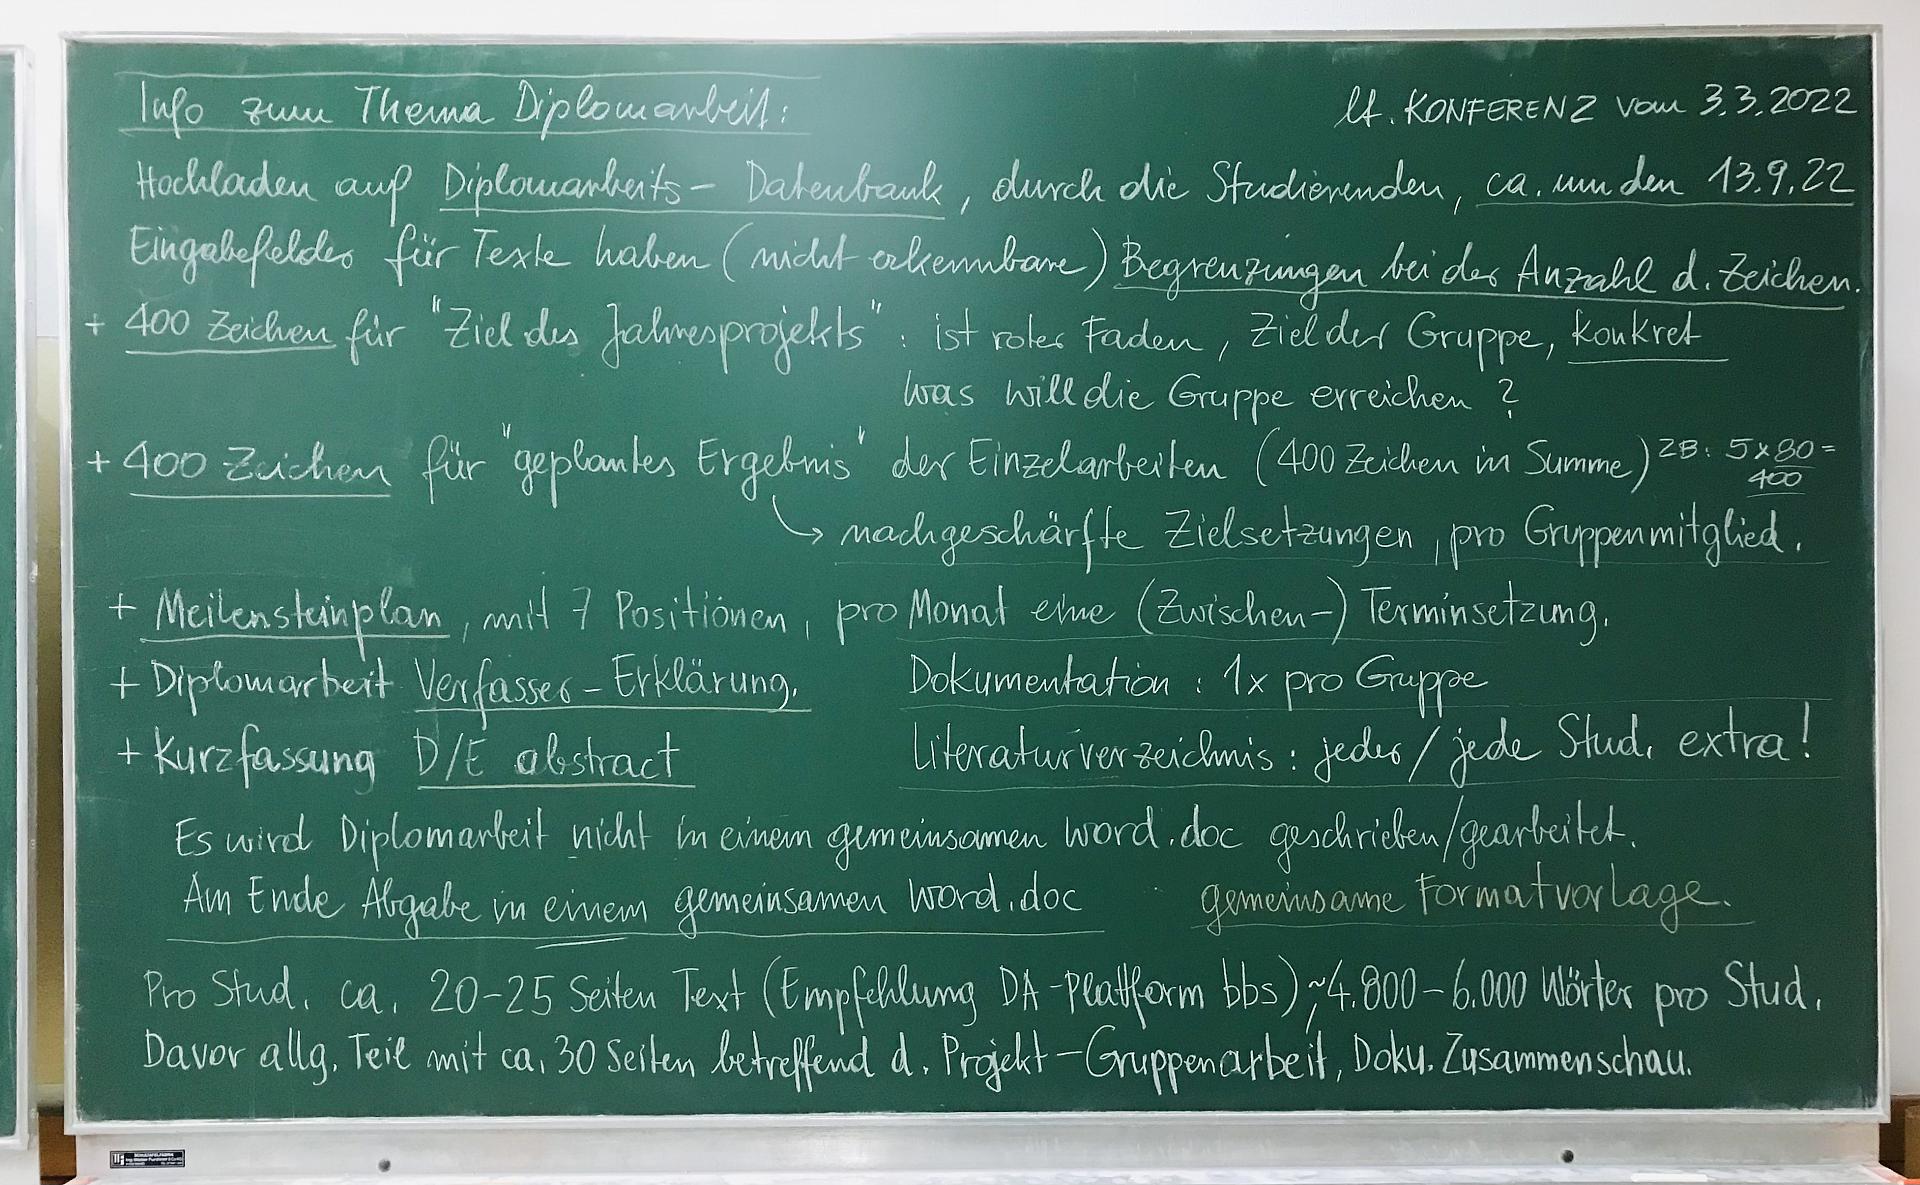 Info zum Thema Diplomarbeit:
lt. KONFERENZ vom 3.3.2022
Hochladen auf Diplomarbeits- Datenbank, durch die Studierenden, ca. um den 13.9.22
Eingabefelder für Texte haben (nicht erkennbare) Begrenzungen bei der Anzahl d. Zeichen.
+ 400 Zeichen für "Ziel des Jahresprojekts": ist roter Faden, Ziel der Gruppe, konkret
was will die Gruppe erreichen?
+ 400 Zeichen für "geplantes Ergebnis" der Einzelarbeiten (400 Zeichen in Summe) ZB: 5x80=
400
→ nachgeschärfte Zielsetzungen, pro Gruppenmitglied.
+ Meilensteinplan, mit 7 Positionen, pro Monat eine (Zwischen-) Terminsetzung.
+ Diplomarbeit Verfasser-Erklärung. Dokumentation: 1x pro Gruppe
+ Kurzfassung D/E abstract Literaturverzeichnis: jeder/jede Stud. extra!
Es wird Diplomarbeit nicht in einem gemeinsamen word.doc geschrieben/gearbeitet.
Am Ende Abgabe in einem gemeinsamen word.doc gemeinsame Formatvorlage.
Pro Stud. ca. 20-25 Seiten Text (Empfehlung DA-Platform bbs), ~4.800-6.000 Wörter pro Stud.
Davor allg. Teil mit ca. 30 Seiten betreffend d. Projekt-Gruppenarbeit, Doku. Zusammenschau.